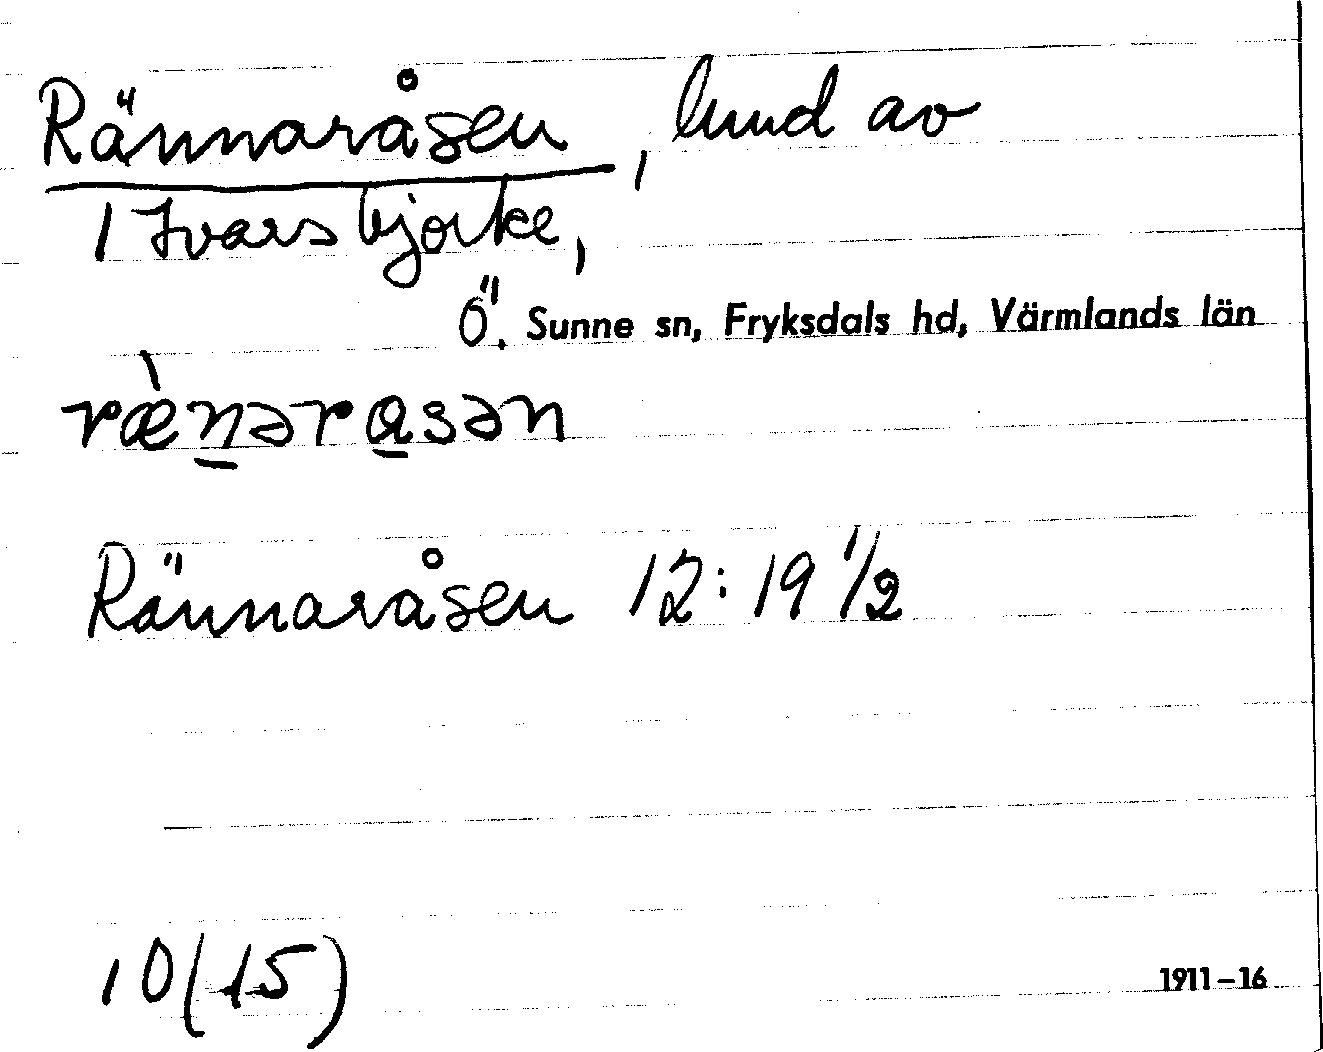 Rännaråsen, lund av
1 Ivarsbjörke,
Ö. Sunne sn, Fryksdals hd, Värmlands län
ræ̀nərɑsən
Rännaråsen 12:19 1/2
10(15)
1911–16